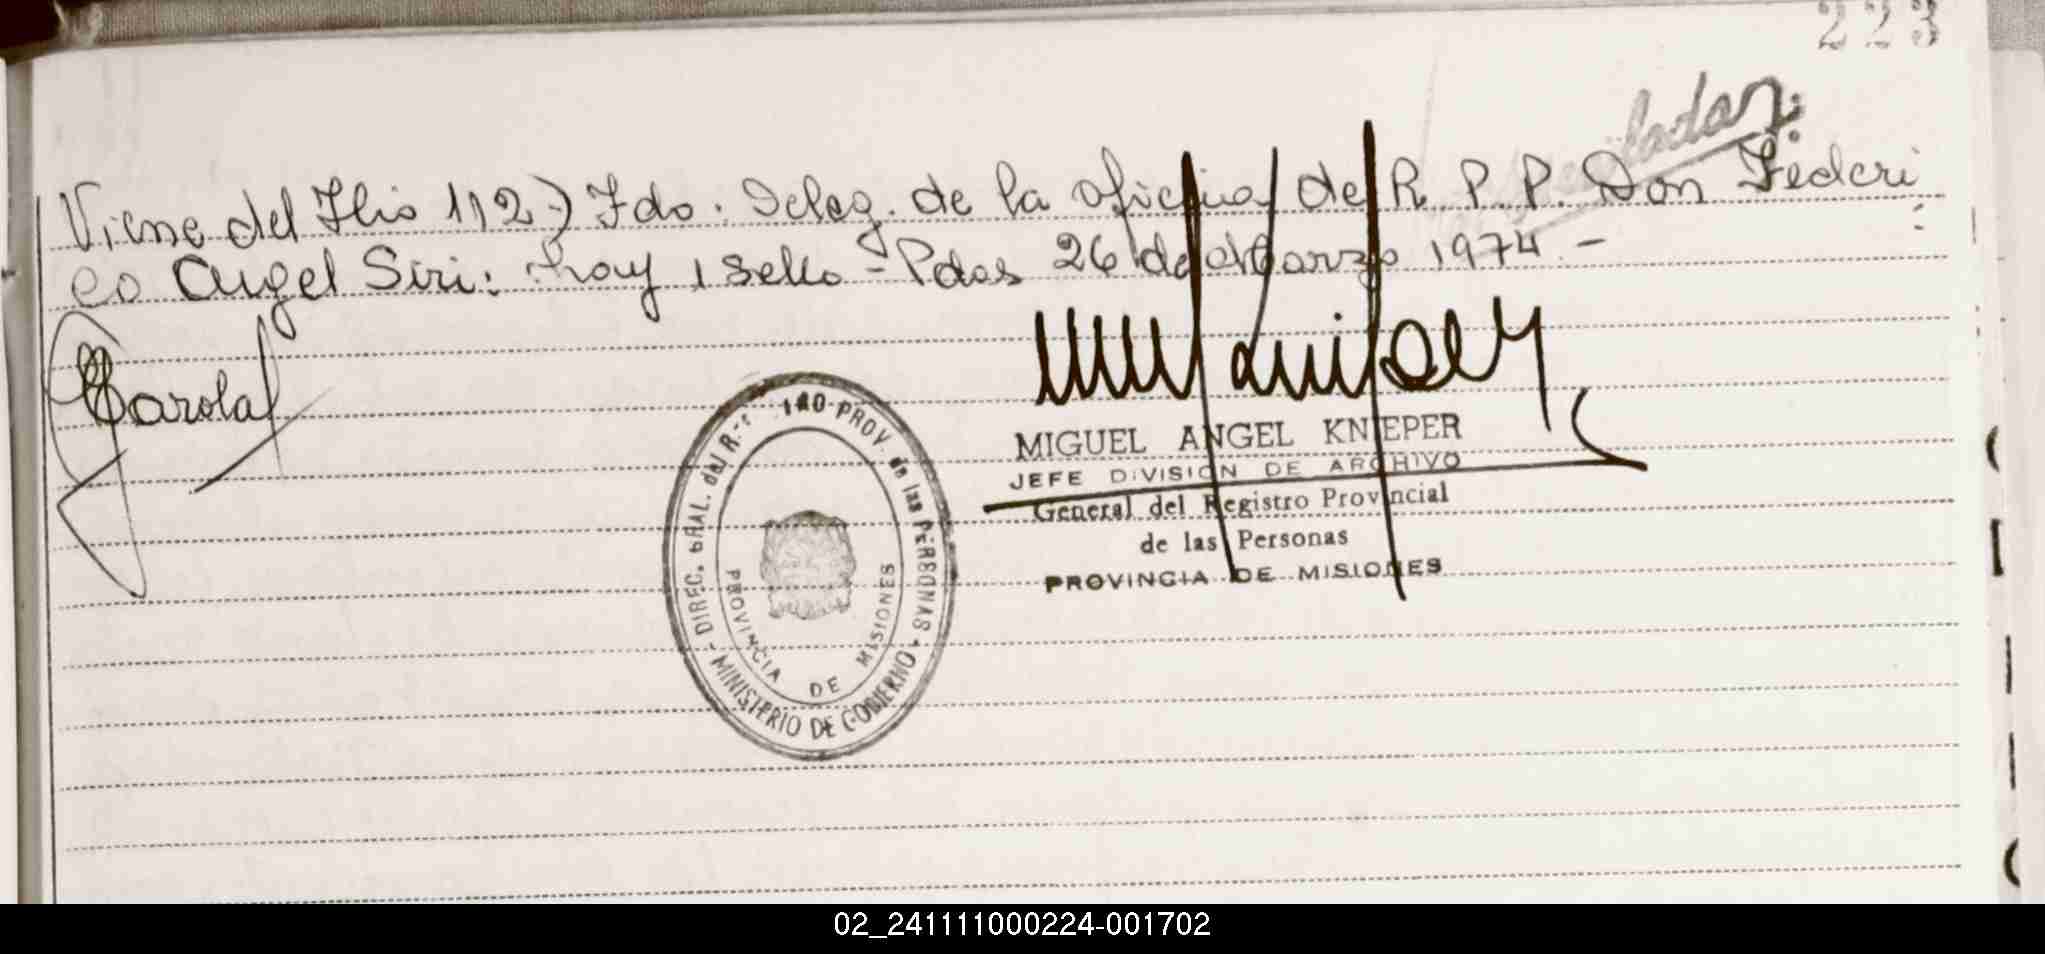 223
Viene del Flio 112-) Fdo. Deleg. de la oficina de R. P. P. Don Federi
co Angel Siri: hay 1 sello - Pdas 26 de Marzo 1974 -
MIGUEL ANGEL KNIEPER
JEFE DIVISION DE ARCHIVO
General del Registro Provincial
de las Personas
PROVINCIA DE MISIONES
DIREC. GRAL. del PROV. de las PERSONAS
PROVINCIA DE MISIONES
MINISTERIO DE GOBIERNO
02_241111000224-001702